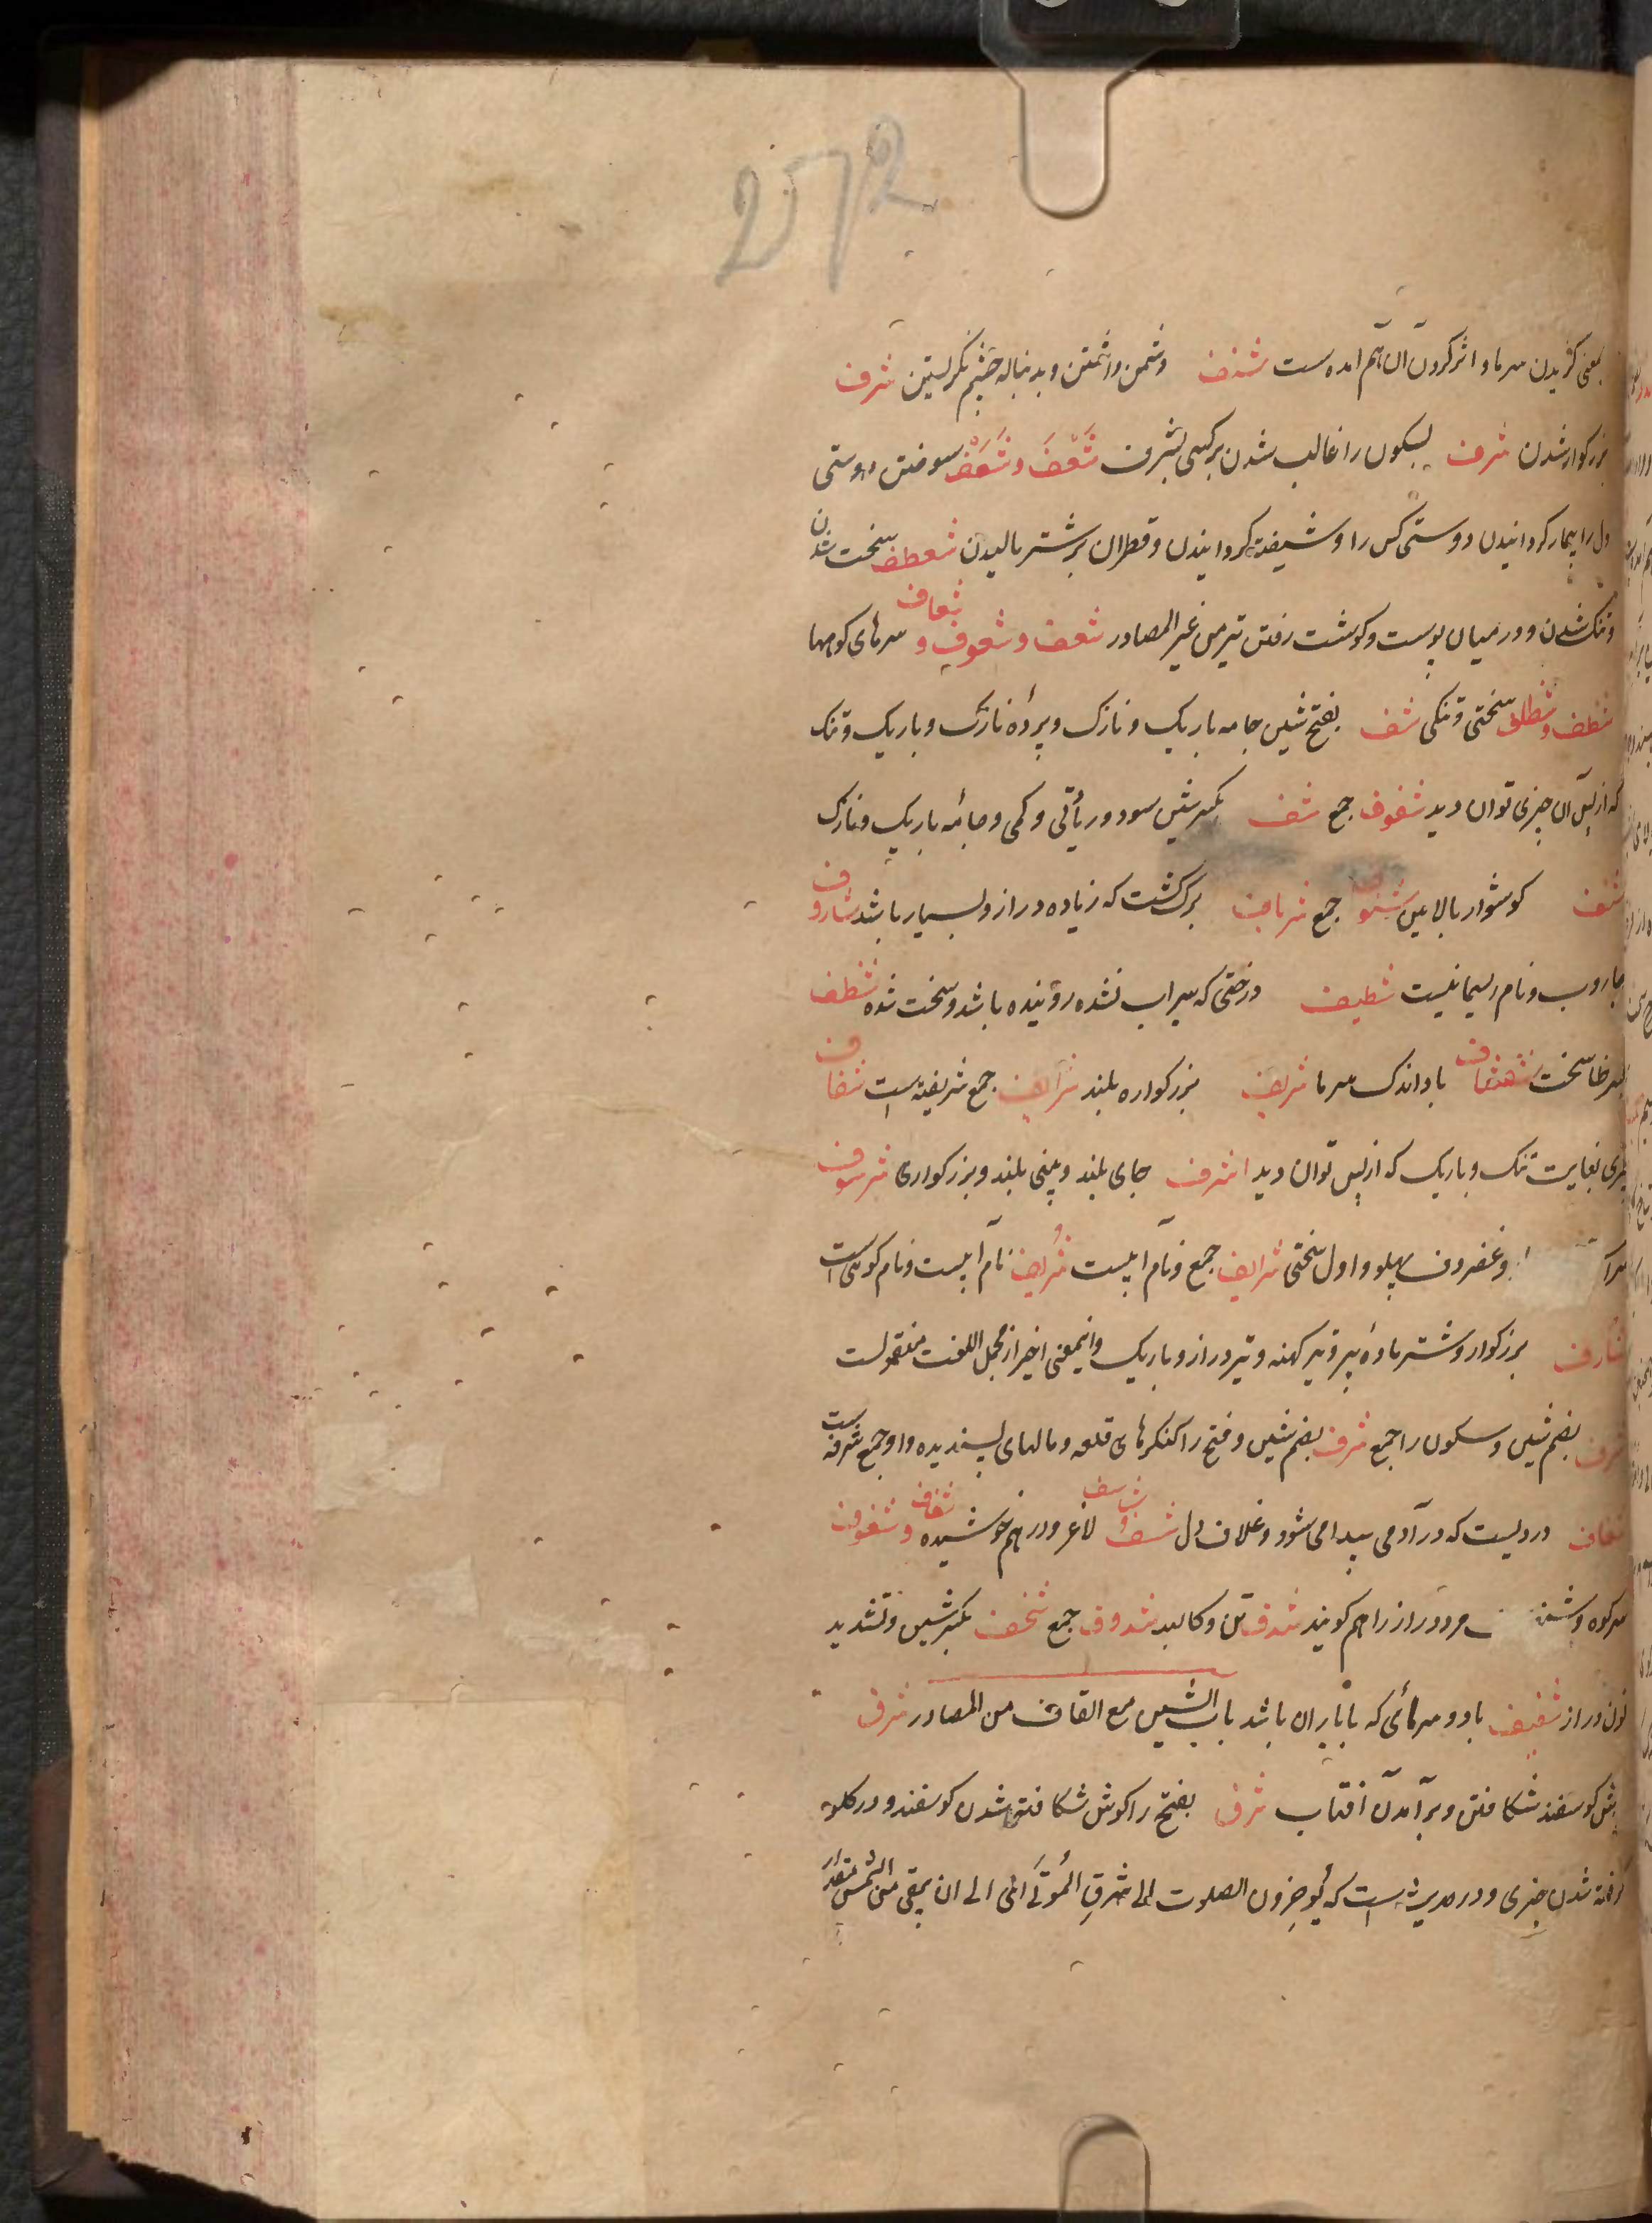 272
بمعنی گزیدن سرما و اثر کردن آن هم آمده ست شنف دشمن داشتن و بدنباله چشم نگریستن شرف
بزرکوار شدن شرف بسکون را غالب شدن بر کسی بشرف شَعْفَ و شَعَف سوختن دوستی
دل را و بیمار کردانیدن دوستی کس را و شیفته کردانیدن و قطران بر شتر مالیدن شظف سخت شدن
و تنک شدن و در میان پوست و کوشت رفتن تیر من غیر المصادر شعف و شعوف و شعاف سرهای کوهها
شظف و شظاف سختی و تنکی شف بفتح شین جامه باریک و نازک و پرده نازک و باریک و تنک
که از پس آن چیزی توان دید شفوف جمع شف بکسر شین سود و زیادتی و کمی و جامه باریک و نازک
شنف کوشوار بالایین شنوف جمع شرناف برک کشت که زیاده دراز و بسیار باشد شاروف
جاروب و نام ریسمانیست شظیف درختی که سیراب نشده روینده باشد و سخت شده شظف
بکسر ظا سخت شفشاف باد اندک سرما شریف بزرکوار و بلند شرایف جمع شریفه است شفاف
چیزی بغایت تنک و باریک که از پس توان دید اشرف جای بلند و بینی بلند و بزرکواری شرسوف
و غضروف پهلو و اول سختی شراسیف جمع و نام آبیست شریف نام آبیست و نام کوهی است
شارف بزرکوار و شتر ماده پیر و تیر کهنه و تیر دراز و باریک و اینمعنی اخیر از مجمل اللغت منقولست
شرف بضم شین و سکون را جمع شرف بضم شین و فتح را کنکرهای قلعه و مالهای پسندیده و او جمع شرفه است
شغاف دردیست که در آدمی پیدا می شود و غلاف دل شسف و شاسف لاغر و در هم خوشیده شغاف و شغوف
سرکوه و مرد دراز را هم کویند شدف تن و کالبد شدوف جمع شنخف بکسر شین و تشدید
نون دراز شفیف باد و سرمای که با باران باشد باب الشین مع القاف من المصادر شرق
کوش کوسفند شکافتن و برآمدن آفتاب شرق بفتح را کوش شکافته شدن کوسفند و در کلو
کرفته شدن چیزی و در حدیث است که یُؤخِرون الصلوت الی شرقِ المَوتَی ای الی ان یبقی من الشمس مقدار